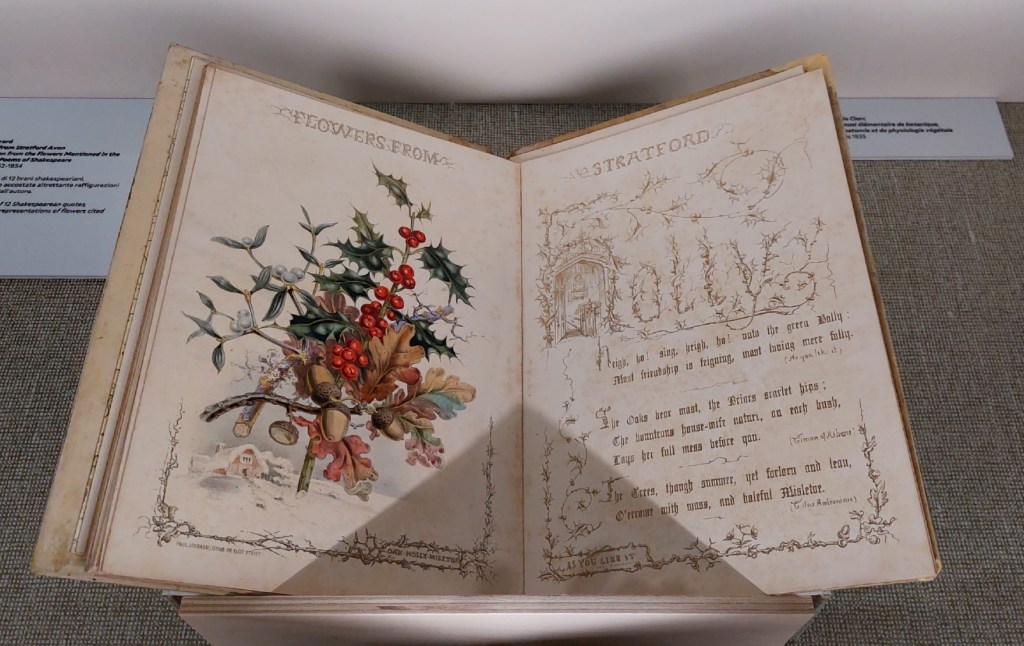 from Stratford Avon
from the Flowers Mentioned in the
Poems of Shakespeare
-1854
di 12 brani shakespeariani,
accostate altrettante raffigurazioni
all'autore.
of 12 Shakespearean quotes,
representations of flowers cited
FLOWERS FROM
OAK HOLLY MISLETOE
STRATFORD
Heigh, ho! sing, heigh, ho! unto the green Holly:
Most friendship is feigning, most loving mere folly.
(As you like it)
The Oaks bear mast, the Briars scarlet hips;
The bounteous house-wife nature, on each bush,
Lays her full mess before you.
(Timon of Athens)
The Trees, though summer, yet forlorn and lean,
O'ercome with moss, and baleful Misletoe.
(Titus Andronicus)
AS YOU LIKE IT
le Clerc
élémentaire de botanique,
anatomie et de physiologie végétale
1835